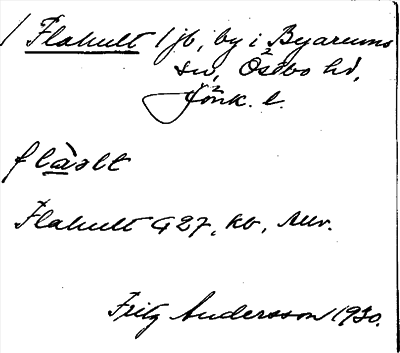 / Flahult 1 jb, by i Byarums
sn, Östbo hd,
Jönk. l.
flàolt
Flahult 427, kb,
Fritz Andersson 1930.